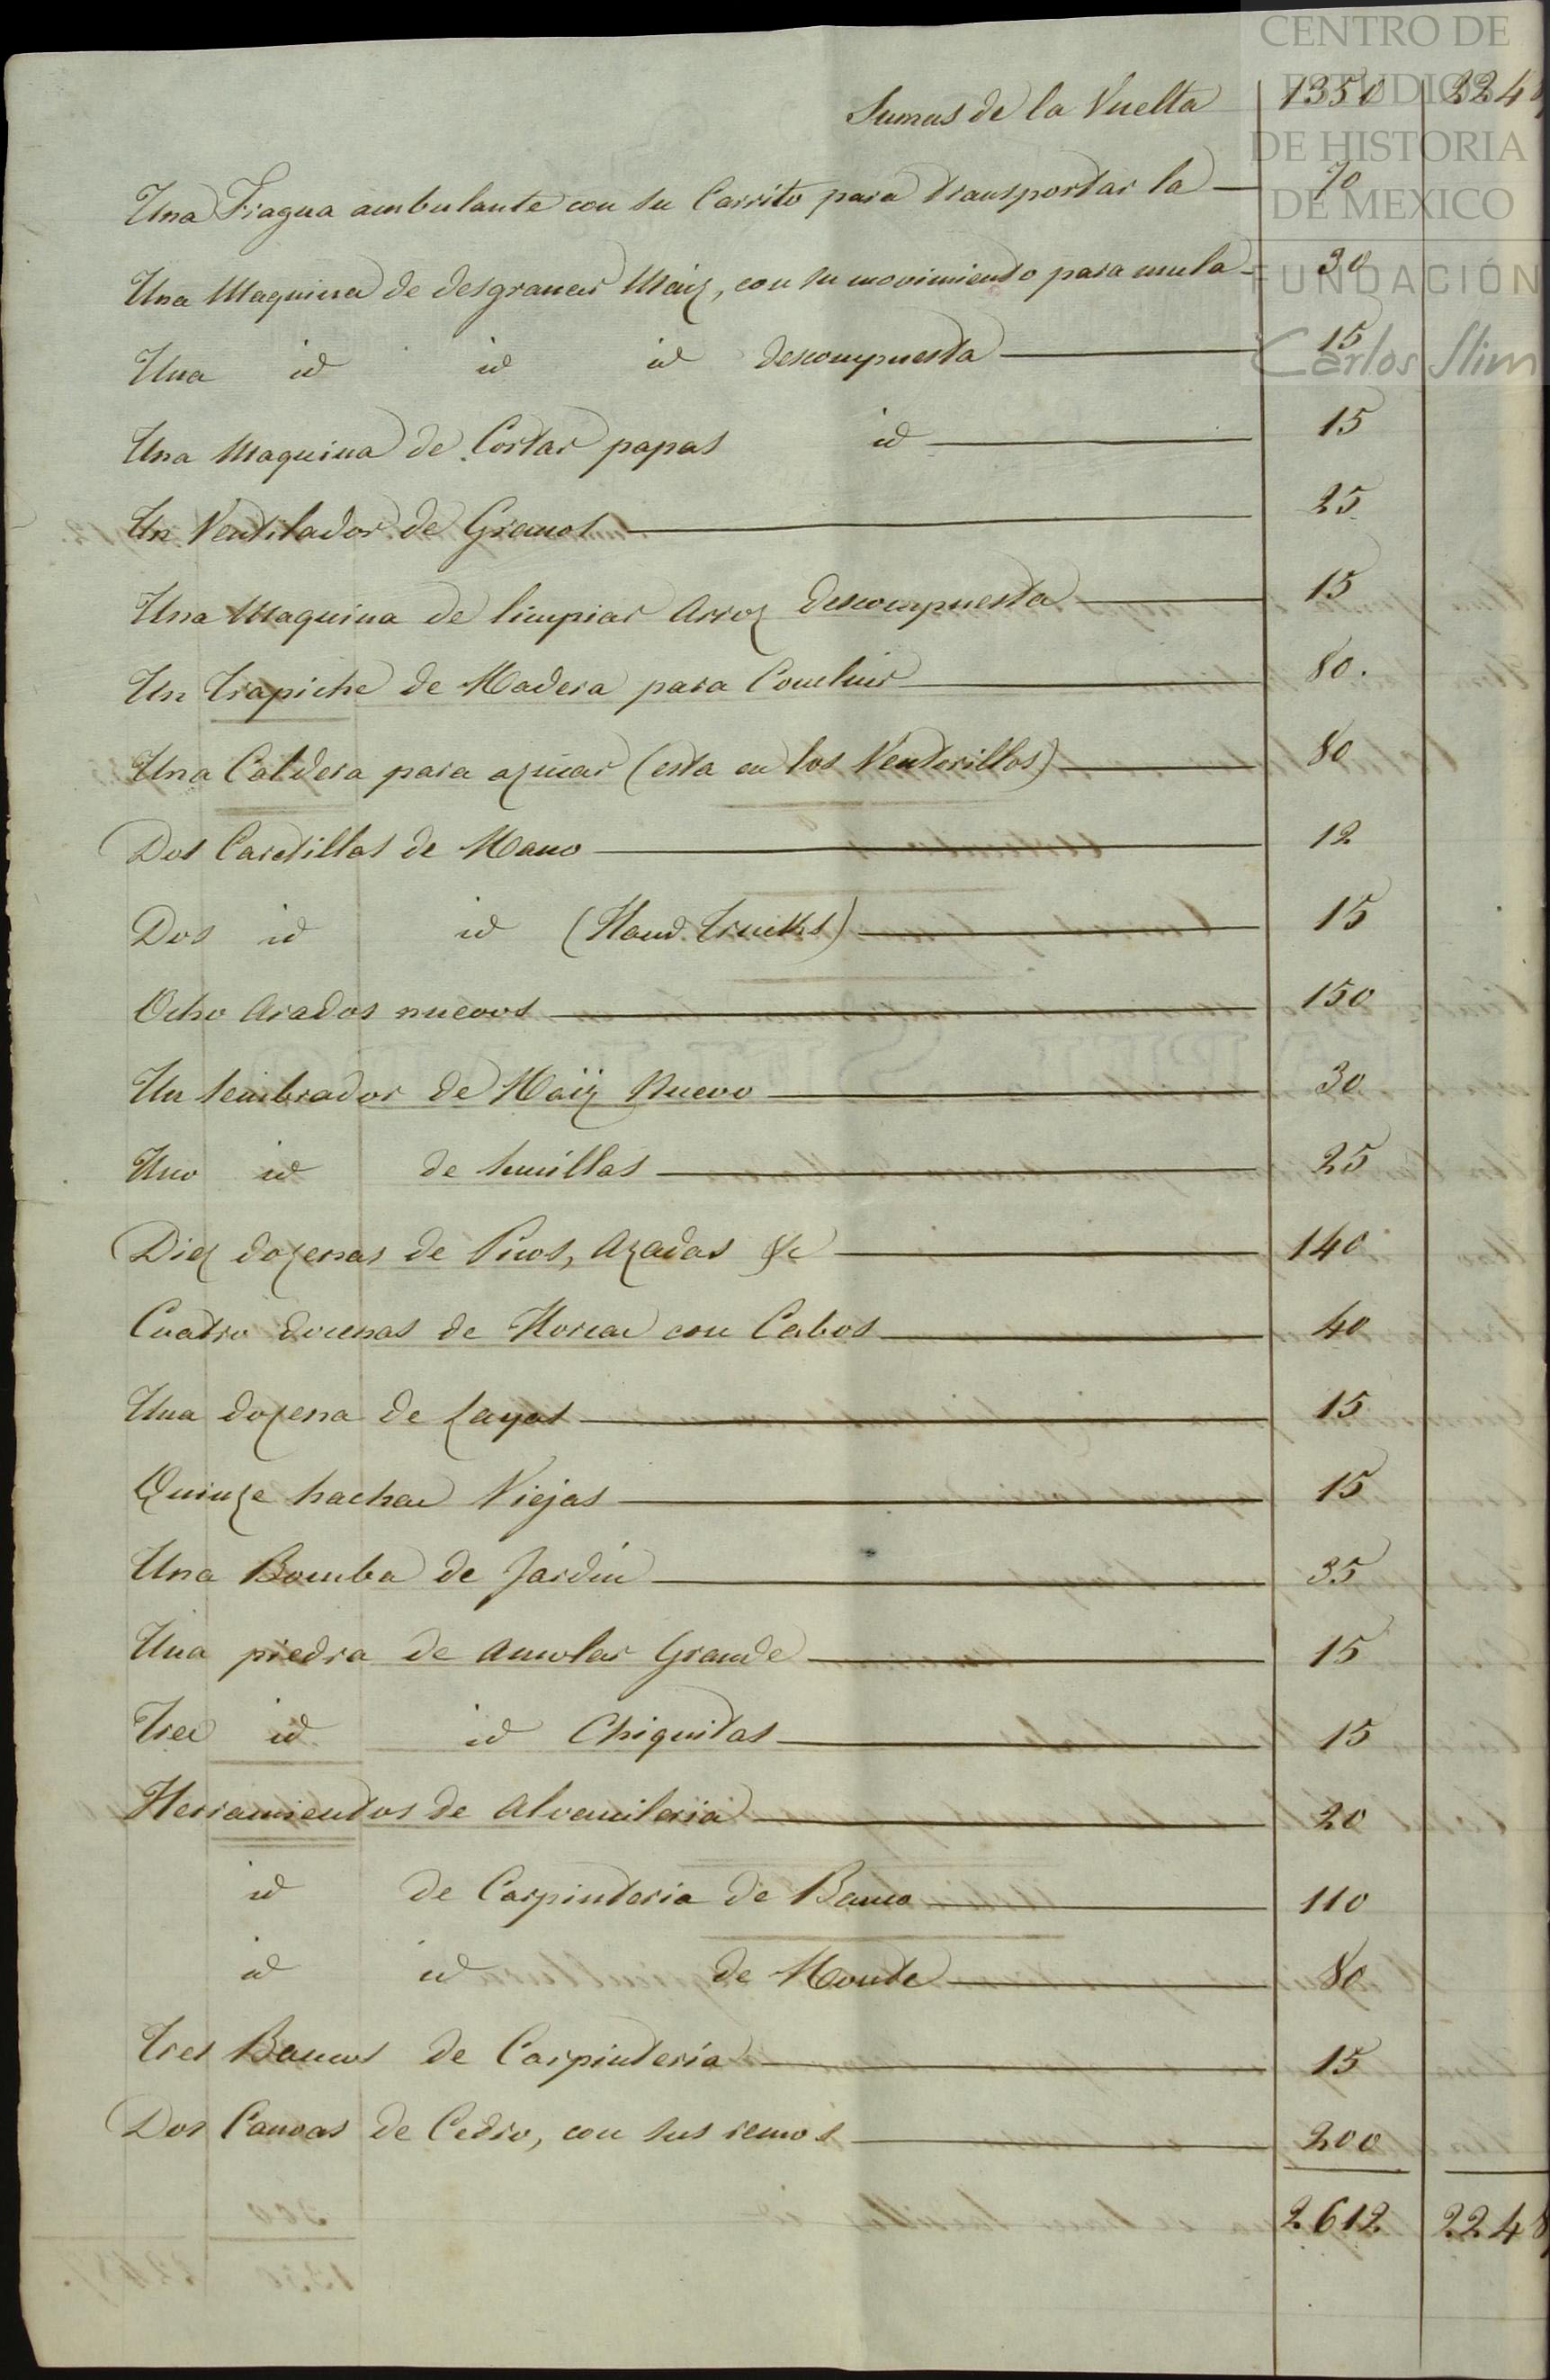 CENTRO DE
ESTUDIOS
DE HISTORIA
DE MEXICO
FUNDACIÓN
Carlos Slim
Sumas de la Vuelta 1350 2248
Una Fragua ambulante con su Carrito para transportar la 70
Una Maquina de desgranar Maiz, con su movimiento para mula 30
Una id id id descompuesta 15
Una Maquina de Cortar papas id 15
Un Ventilador de Granos 25
Una Maquina de limpiar Arroz descompuesta 15
Un Trapiche de Madera para Concluir 80.
Una Caldera para azucar (esta en los Venterillos) 80
Dos Caretillas de Mano 12
Dos id id (Hand Trucks) 15
Ocho Arados nuevos 150
Un Sembrador de Maiz Nuevo 30
Uno id de Semillas 25
Diez dozenas de Picos, Azadas &c 140
Cuatro docenas de Horcas con Cabos 40
Una dozena de Layas 15
Quinze hachas Viejas 15
Una Bomba de Jardin 35
Una piedra de Amolar Grande 15
Tres id id Chiquitas 15
Herramientos de Alvanileria 20
id de Carpinteria de Banco 110
id id de Monte 80
Tres Bancos de Carpinteria 15
Dos Canoas de Cedro, con sus remos 200
2612 2248